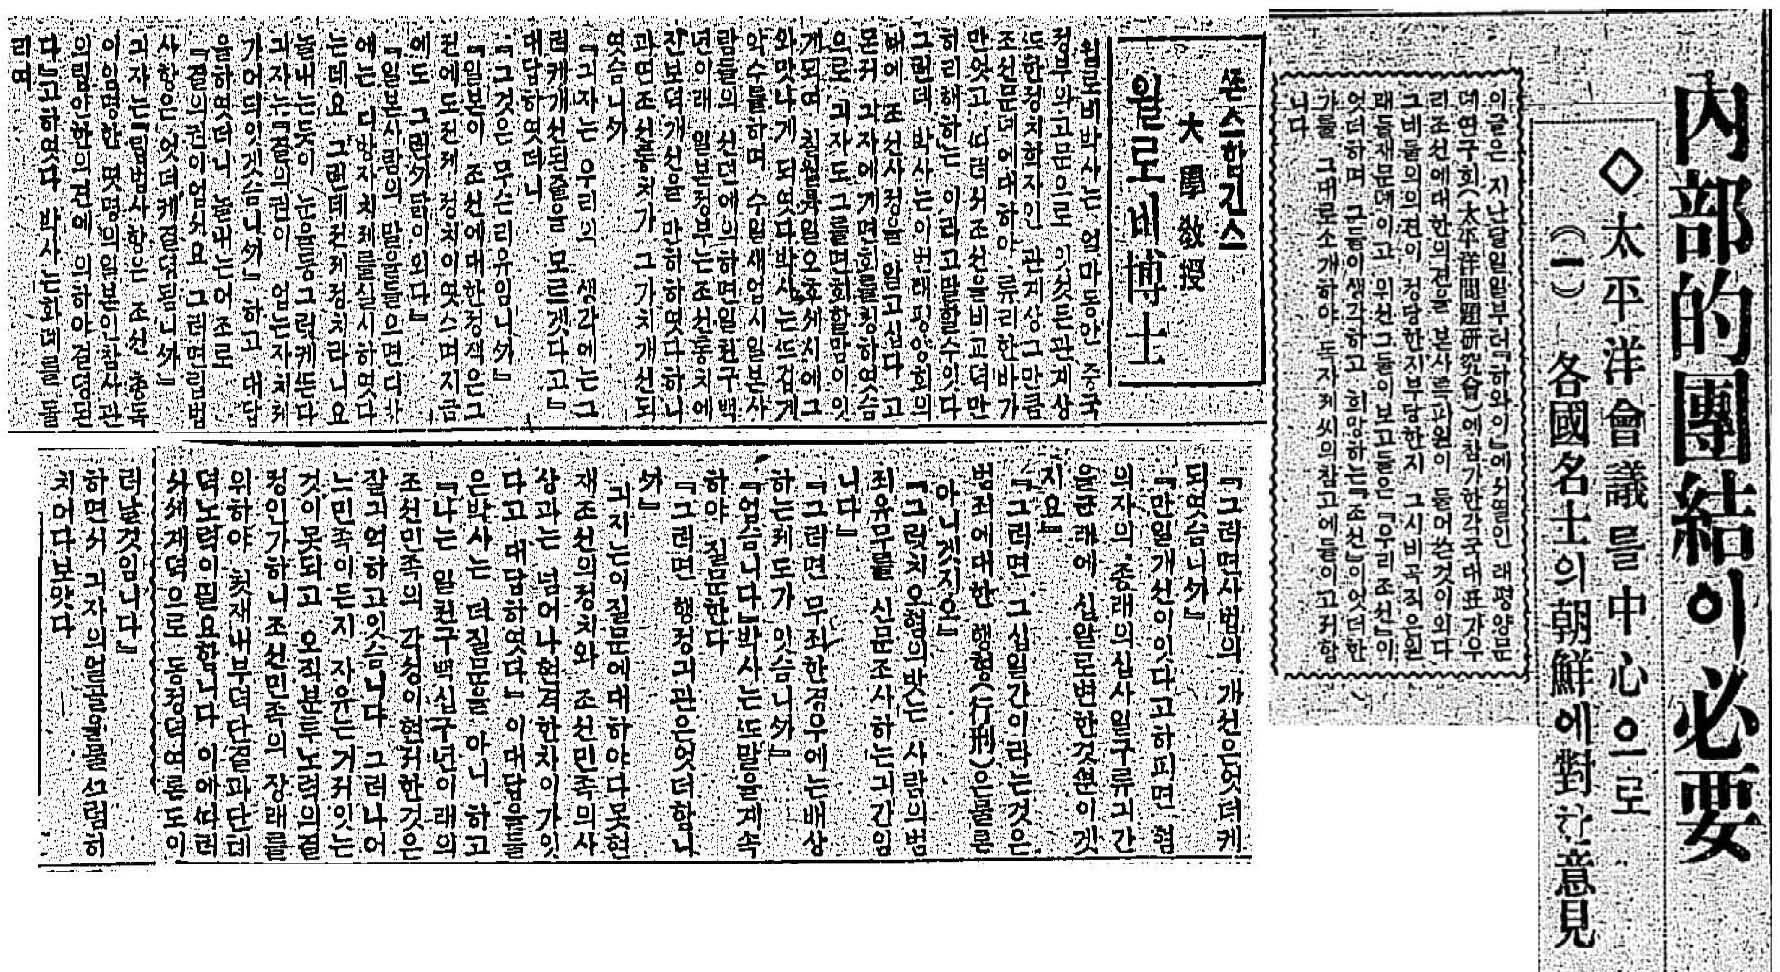 內部的團結이必要
◇太平洋會議를中心으로
(一) 各國名士의朝鮮에對한意見
이글은 지난달일일부터『하와이』에서열인 태평양문
데연구회(太平洋問題硏究會)에참가한각국대표가우
리조선에대한의견을 본사특파원이 들어쓴것이외다
그네들의의견이 정당한지부당한지 그시비곡직은원
래둘재문뎨이고 위선그들이보고들은『우리조선』이
엇더하며 그들이생각하고 희망하는『조선』이엇더한
가를 그대로소개하야 독자제씨의참고에들이고저함
니다
쫀스합긴스
大學敎授
윌로비博士
윌로비박사는 얼마동안 중국
정부의고문으로 이섯든관계상
도한정치학자인 관계상그만큼
조선문뎨에대하야 류리한바가
만엇고 따러서조선을비교덕만
히리해하는 이라고말할수잇다
그런데 박사는이번태평양회의
배에 조선사정을 알고십다 고
몬저 긔자에게면회를청하엿슴
으로 긔자도그를면회할맘이잇
개되여 칠월륙일오후세시에그
와맛나게 되엿다박사는뜨겁게
악수를하며 수일새업시일본사
람들의 선뎐에의하면일천구백
년이래 일본정부는조선통치에
잔보덕개선을 만히하엿다하니
과연조선통치가 그가치개선되
엿슴니까
『긔자는 우리의 생각에는그
러케개선된줄을 모르겟다고』
대답하엿더니
『그것은무슨리유임니까』
『일본이 조선에대한정책은그
전에도전제 정치이엿스며지금
에도 그런까닭이외다』
『일본사람의 말을들으면다소
에는 디방자치제를실시하엿다
는데요 그런데전제정치라니요
놀내는듯이 눈을둥그럭케뜬다
긔자는『결의권이 업는자치제
가어대잇겟슴니까』하고 대답
을하엿더니 놀내는어조로
『결의권이업서요 그러면립법
사항은엇더케결뎡됨니까』
긔자는『립법사항은 조선 총독
이임명한 몃명의일본인참사관
의립안한의견에 의하야결뎡된
다』고하엿다 박사는회뎨를 돌
리며
『그러면사법의 개선은엇더케
되엿슴니까』
『만일개선이이다고하피면 혐
의자의 종래의십사일구류긔간
을근래에 십일로변한것뿐이겟
지요』
『그러면 그십일간이라는것은
범죄에대한 행형(行刑)은물론
아니겟지요』
『그럿치요혐의밧는 사람의범
죄유무를 신문조사하는긔간임
니다』
『그러면 무죄한경우에는배상
하는제도가 잇슴니까』
『업슴니다』박사는또말을계속
하야 질문한다
『그러면 행정긔관은엇더함니
까』
긔자는이질문에대하야다못현
재조선의정치와 조선민족의사
상과는 넘어나현격한차이가잇
다고 대답하엿다』이대답을들
은박사는 더질문을 아니 하고
『나는 일천구백십구년이래의
조선민족의 각성이현저한것은
잘긔억하고잇슴니다 그러나어
느민족이든지 자유는거저잇는
것이못되고 오직분투노력의결
정인가하니조선민족의 장래를
위하야 첫재내부뎍단결과단톄
뎍노력이필요함니다 이에따러
서세계뎍으로 동정뎍여론도이
러날것임니다』
하면서 긔자의얼골을물ᄭᅳ럼히
치어다보앗다